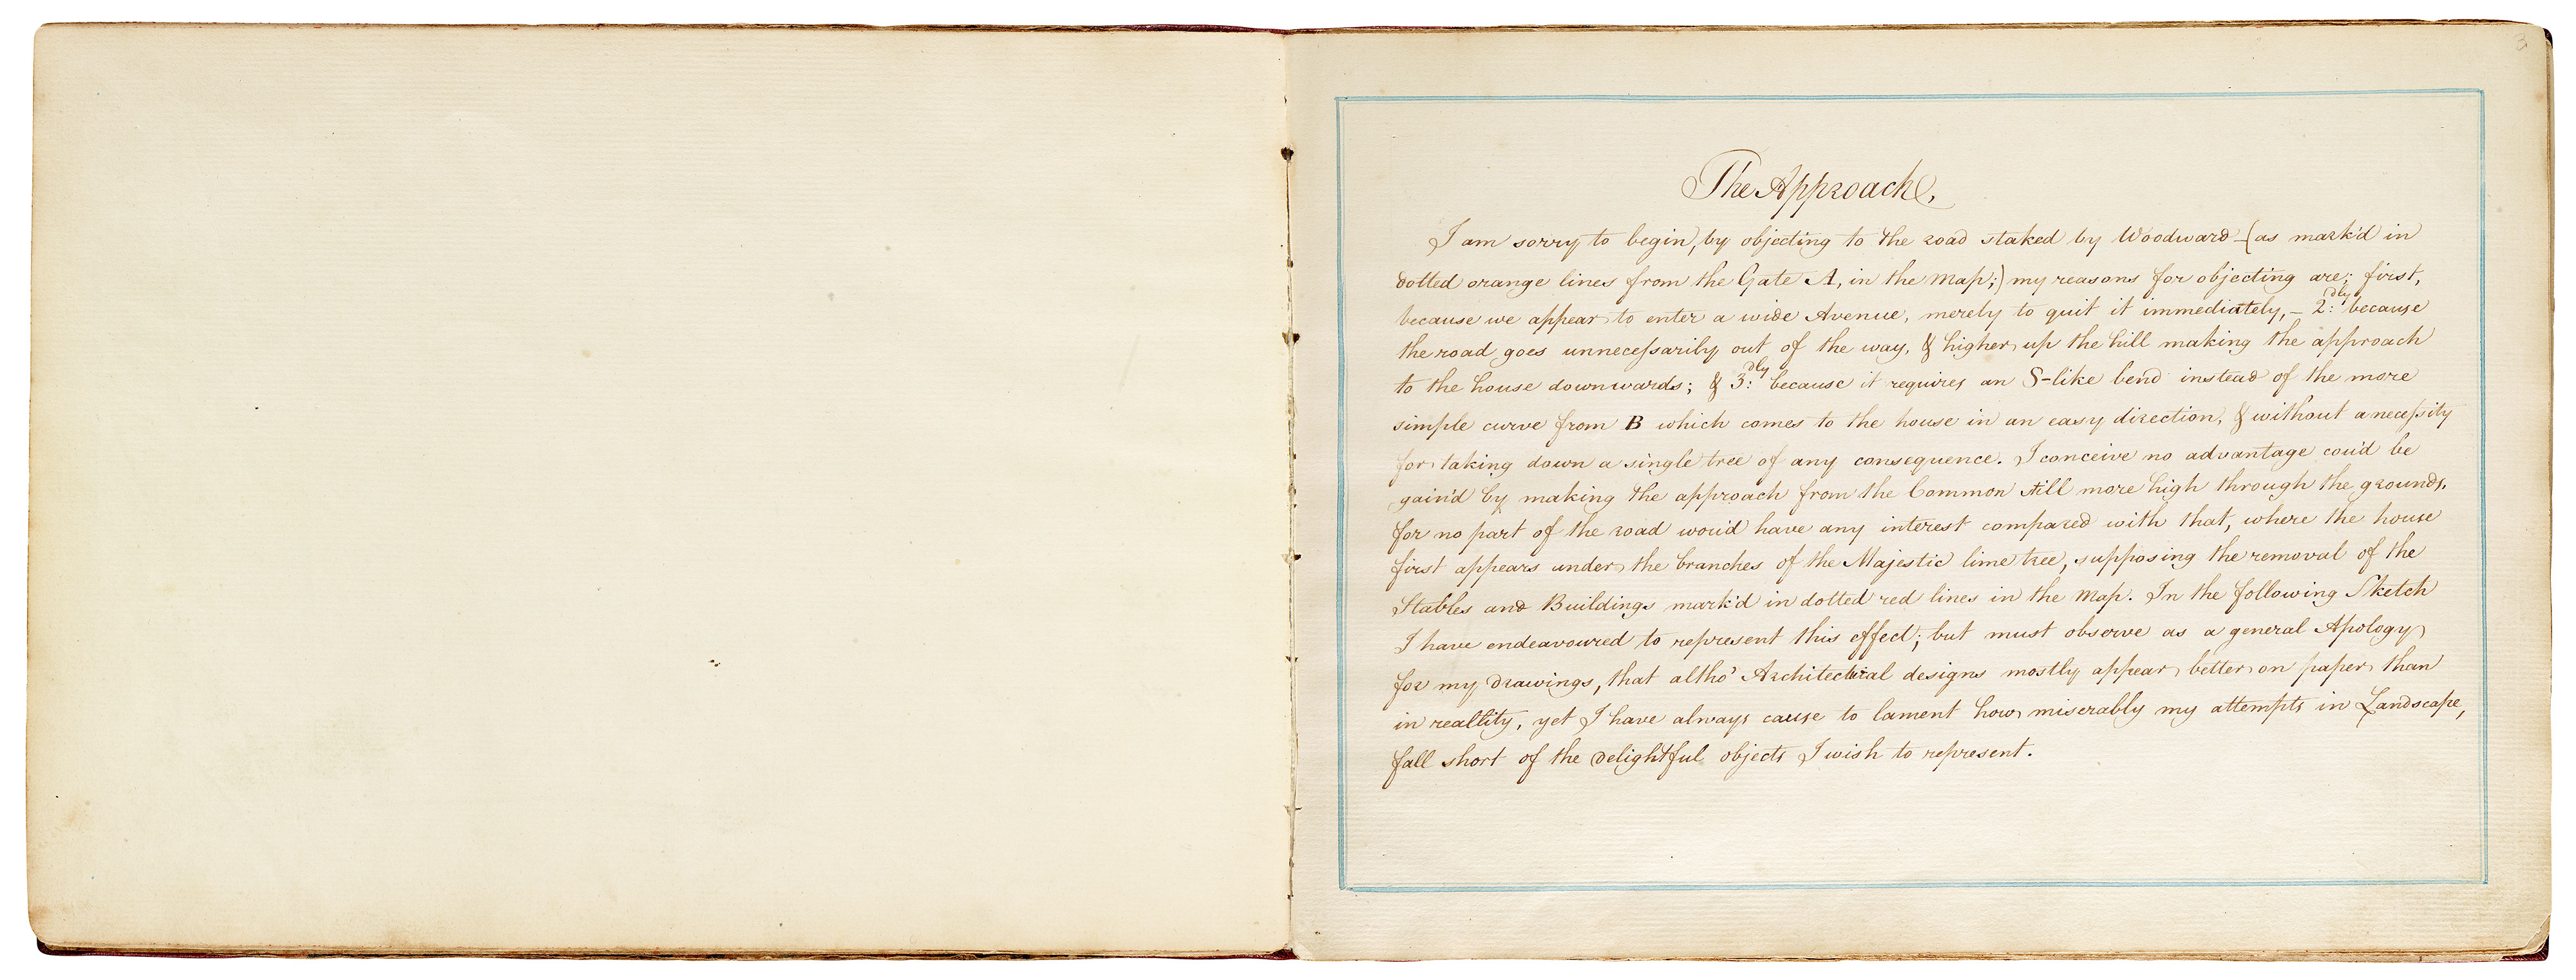 3
The Approach,
I am sorry to begin, by objecting to the road staked by Woodward - (as mark'd in
dotted orange lines from the Gate A, in the Map;) my reasons for objecting are; first,
because we appear to enter a wide Avenue, merely to quit it immediately, - 2:dly because
the road goes unnecessarily out of the way, & higher up the hill making the approach
to the house downwards; & 3:dly because it requires an S-like bend instead of the more
simple curve from B which comes to the house in an easy direction, & without a necessity
for taking down a single tree of any consequence. I conceive no advantage cou'd be
gain'd by making the approach from the Common still more high through the grounds,
for no part of the road wou'd have any interest compared with that, where the house
first appears under the branches of the Majestic lime tree, supposing the removal of the
Stables and Buildings mark'd in dotted red lines in the Map. In the following Sketch
I have endeavoured to represent this effect; but must observe as a general Apology
for my drawings, that altho' Architectural designs mostly appear better on paper than
in reallity, yet I have always cause to lament how miserably my attempts in Landscape,
fall short of the delightful objects I wish to represent.